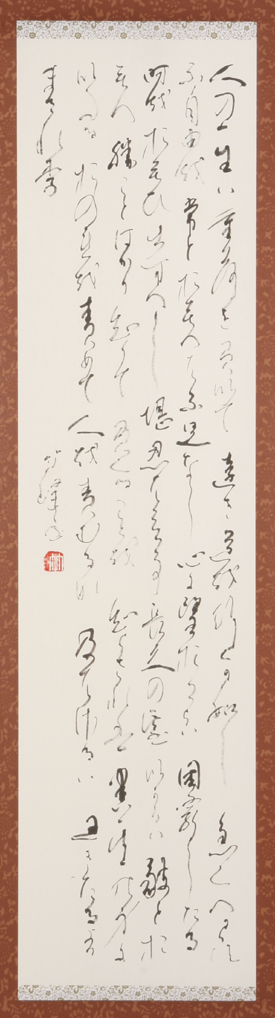 人の一生は重荷を負いて遠き道を行くが如し急くへからす
不自由を常とおもへは不足なし心に望おこらは困窮したる
時をおもひ出すへし堪忍は無事長久の基いかりは敵とお
もへ勝ことはかり知りてまくる事を知らされは害其身に
いたるおのれを責めて人を責むるな及はさるは過きたるより
まされり